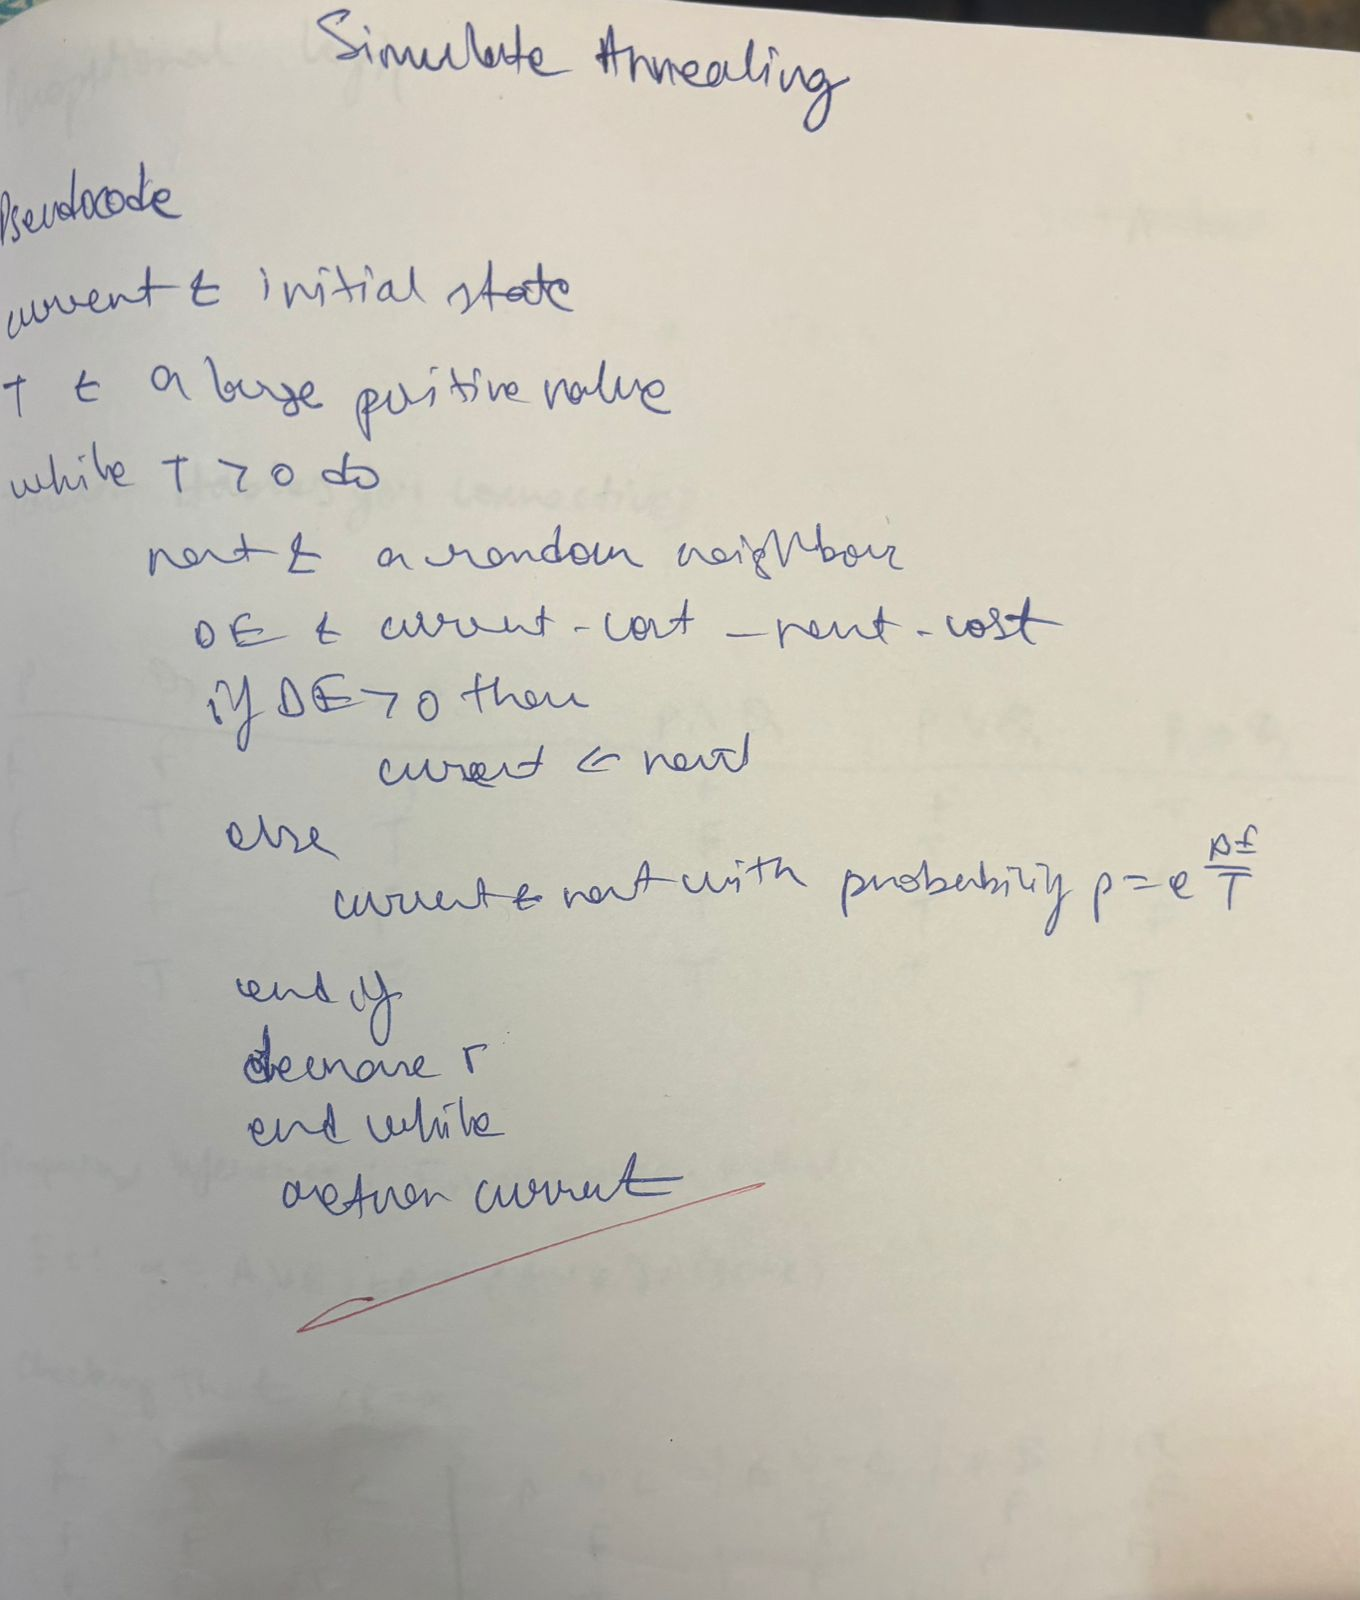 Simulate Annealing
Pseudocode
current ← initial state
T ← a large positive value
while T > 0 do
next ← a random neighbour
ΔE ← current - cost - next - cost
if ΔE > 0 then
current ← next
else
current ← next with probability p = e ΔE/T
end if
decrease T
end while
return current